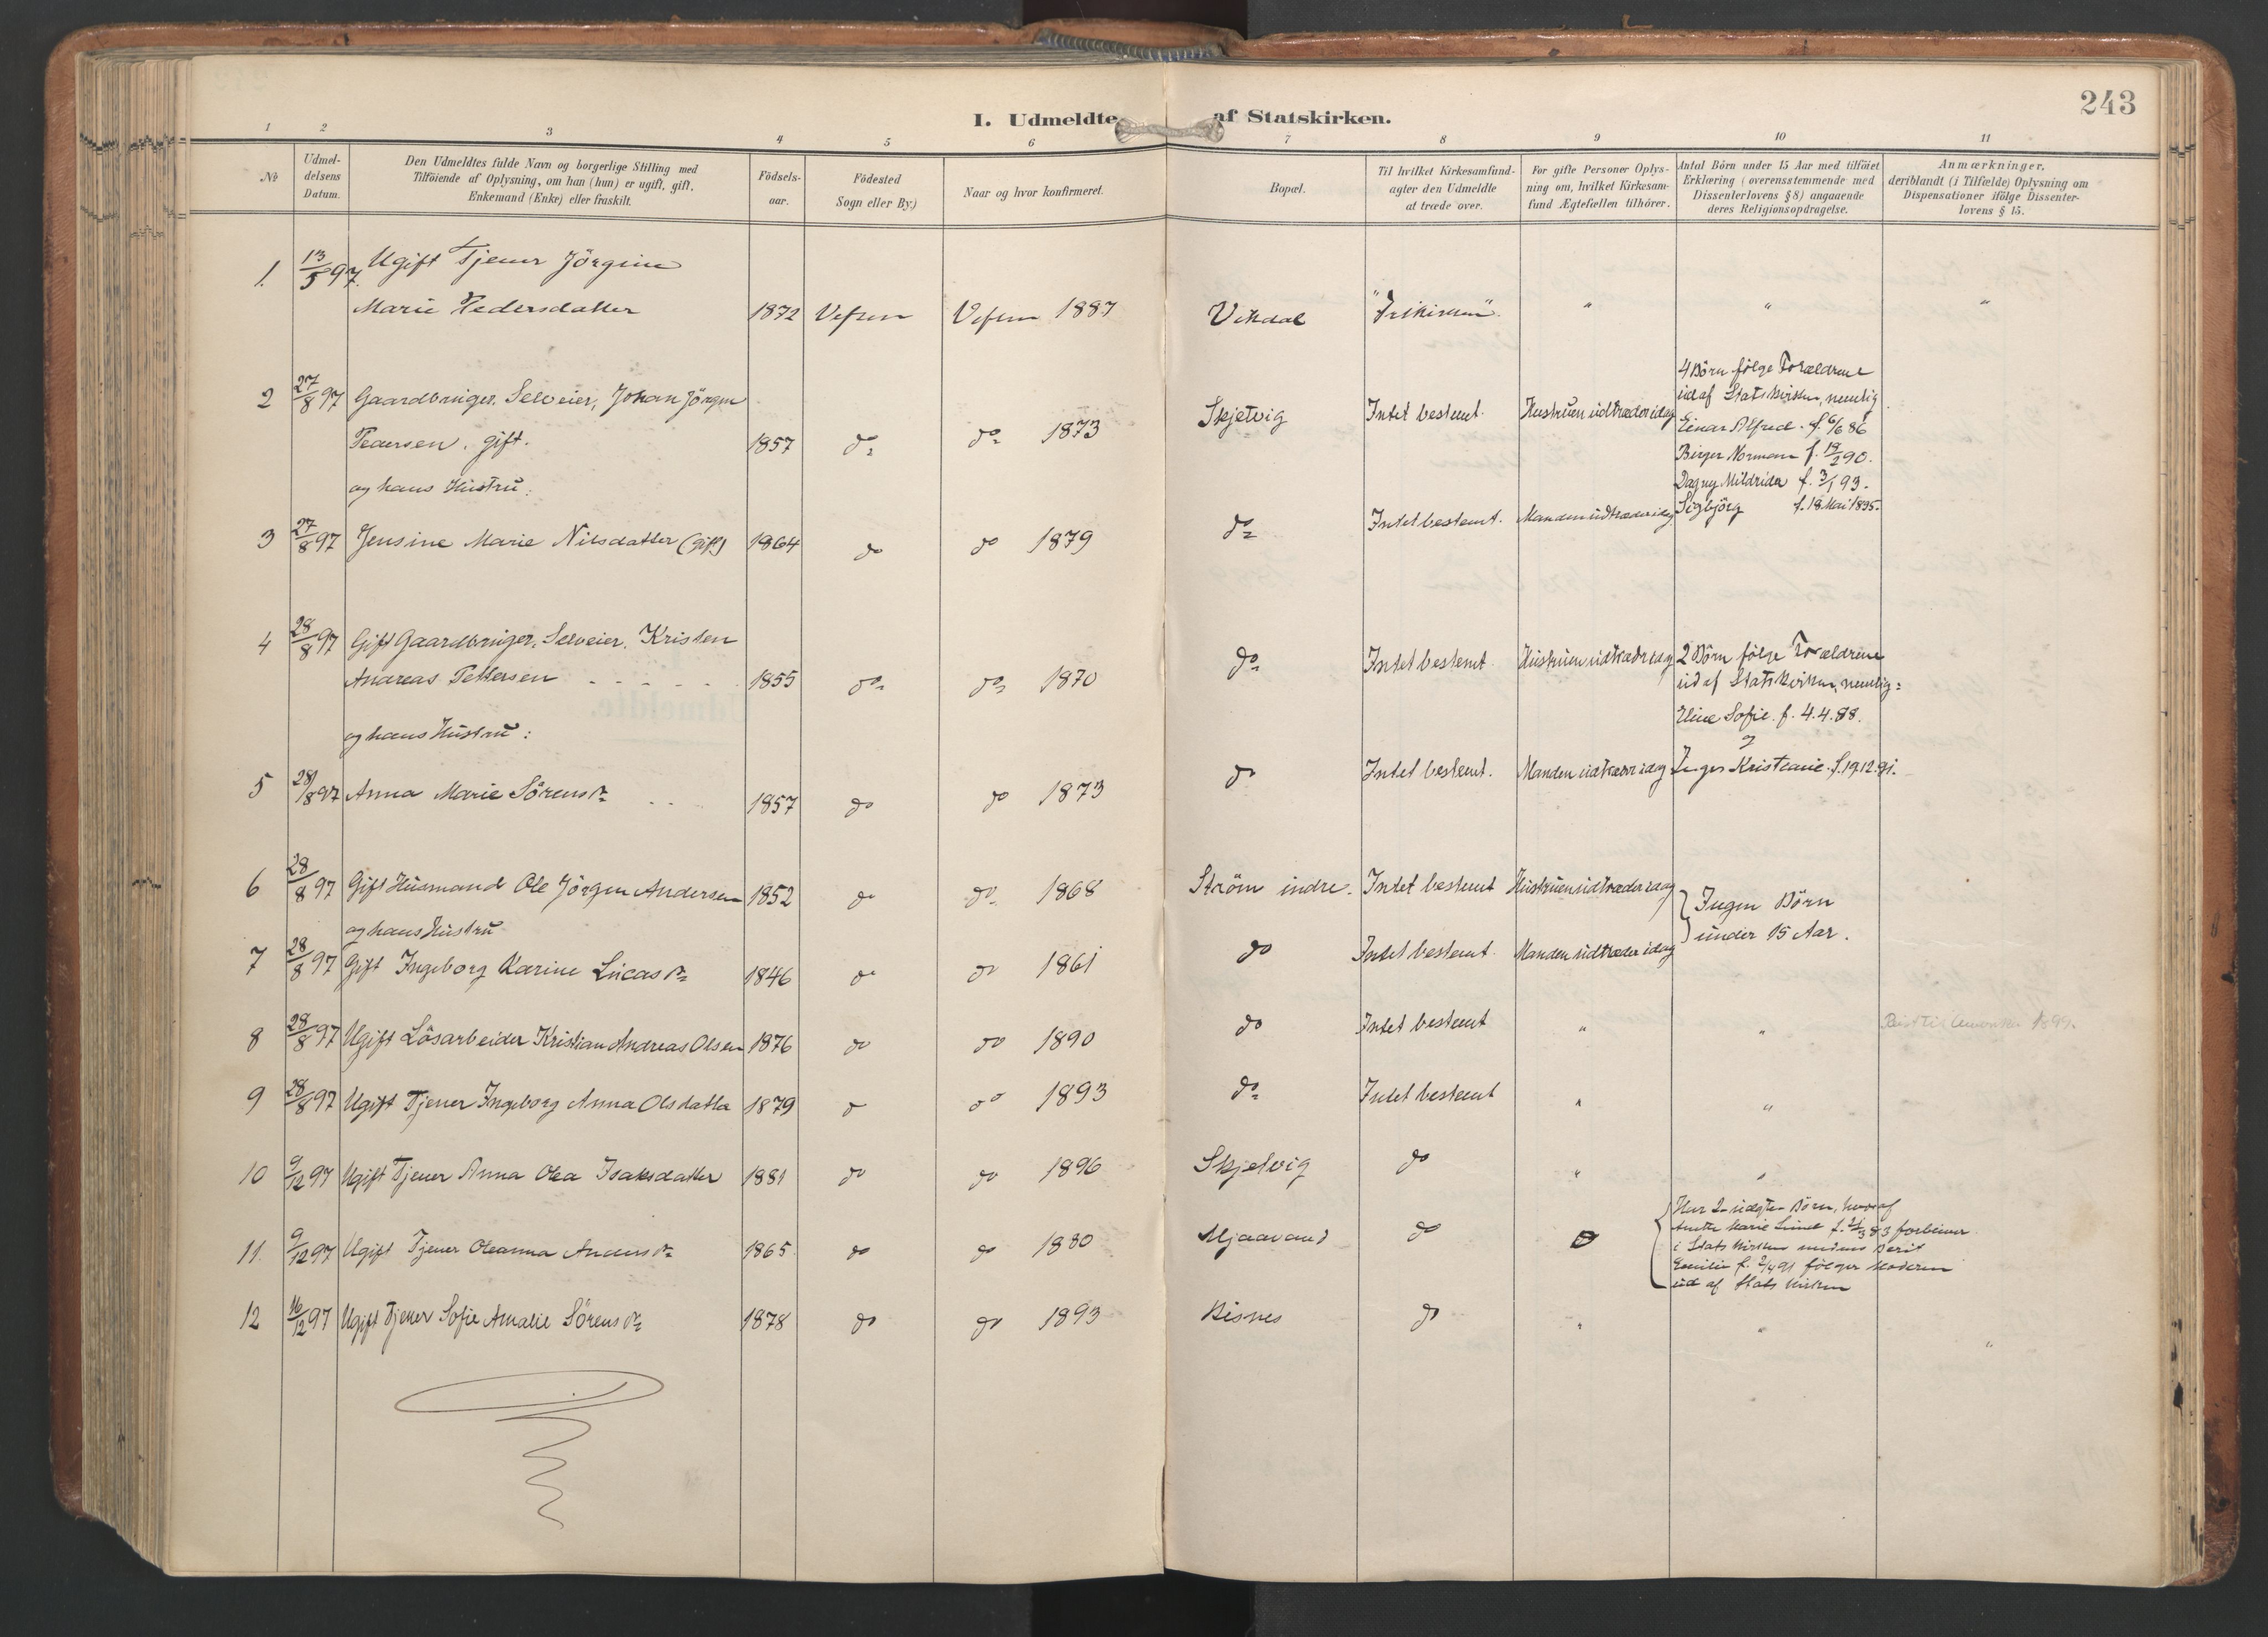 243
I. Udmeldte af Statskirken.
1 2 3 4 5 6 7 8 9 10 11
No
Udmel-
delsens
Datum.
Den Udmeldtes fulde Navn og borgerlige Stilling med
Tilföiende af Oplysning, om han (hun) er ugift, gift,
Enkemand (Enke) eller fraskilt.
Födsels-
aar.
Födested
Sogn eller By.)
Naar og hvor konfirmeret.
Bopæl.
Til hvilket Kirkesamfund-
agter den Udmeldte
at træde over.
For gifte Personer Oplys-
ning om, hvilket Kirkesam-
fund Ægtefællen tilhörer.
Antal Börn under 15 Aar med tilföiet
Erklæring (overensstemmende med
Dissenterlovens § 8) angaaende
deres Religionsopdragelse.
Anmærkninger,
deriblandt (i Tilfælde) Oplysning om
Dispensationer ifölge Dissenter-
lovens § 15.
1. 13/5 97. Ugift Tjener Jörgine
Marie Pedersdatter 1872 Vefsen Vefsen 1887 Vikdal "Frikirken". " " "
2 27/8 97 Gaardbruger, Selveier, Johan Jörgen
Pedersen. gift. 1857 do do 1873 Skjelvig Intet bestemt. Hustruen udtræder idag
4 Börn fölge Forældrene
ud af Statskirken, nemlig
Einar Alfred. f. 6/6 86
Birger Normann f. 19/2 90.
Dagny Mildrida f. 3/1 93.
Sigbjörg f. 18 Mai 1895.
og hans Hustru:
3 27/8 97 Jensine Marie Nilsdatter (gift) 1864 do do 1879 do Intet bestemt. Manden udtræder idag
4 28/8 97 Gift Gaardbruger, Selveier, Kristen
Andreas Pettersen - - - - - 1855 do do 1870 do Intet bestemt Hustruen udtræder idag
2 Börn fölge Forældrene
ud af Statskirken, nemlig:
Eline Sofie. f. 4.4.88.
og
Inger Kristianie. f. 19.12.91.
og hans Hustru:
5 28/8 97 Anna Marie Sörens dr 1857 do do 1873 do Intet bestemt. Manden udtræder idag
6 28/8 97 Gift Husmand Ole Jörgen Andersen 1852 do do 1868 Ström indre. Intet bestemt Hustruen udtræder idag
og hans Hustru
Ingen Börn
under 15 Aar.
7 28/8 97 Gift Ingeborg Karine Lucas dr 1846 do do 1861 do Intet bestemt. Manden udtræder idag
8 28/8 97 Ugift Lösarbeider Kristian Andreas Olsen 1876 do do 1890 do Intet bestemt " " 1899.
9 28/8 97 Ugift Tjener Ingeborg Anna Olsdatter 1879 do do 1893 do Intet bestemt " "
10 9/12 97 Ugift Tjener Anna Olea Isaksdatter 1881 do do 1896 Skjelvig do " "
11. 9/12 97 Ugift Tjener Oleanna Anders dr 1865 do do 1880 Mjaavand do
Har 2 uægte Börn, hvoraf
Marie f. 21/3 83 forbliver
i Statskirken medens Berit
Emilie f. 2/4 91 fölger Moderen
ud af Statskirken
12 16/12 97 Ugift Tjener Sofie Amalie Sörens dr 1878 do do 1893 Bisnes do " " "